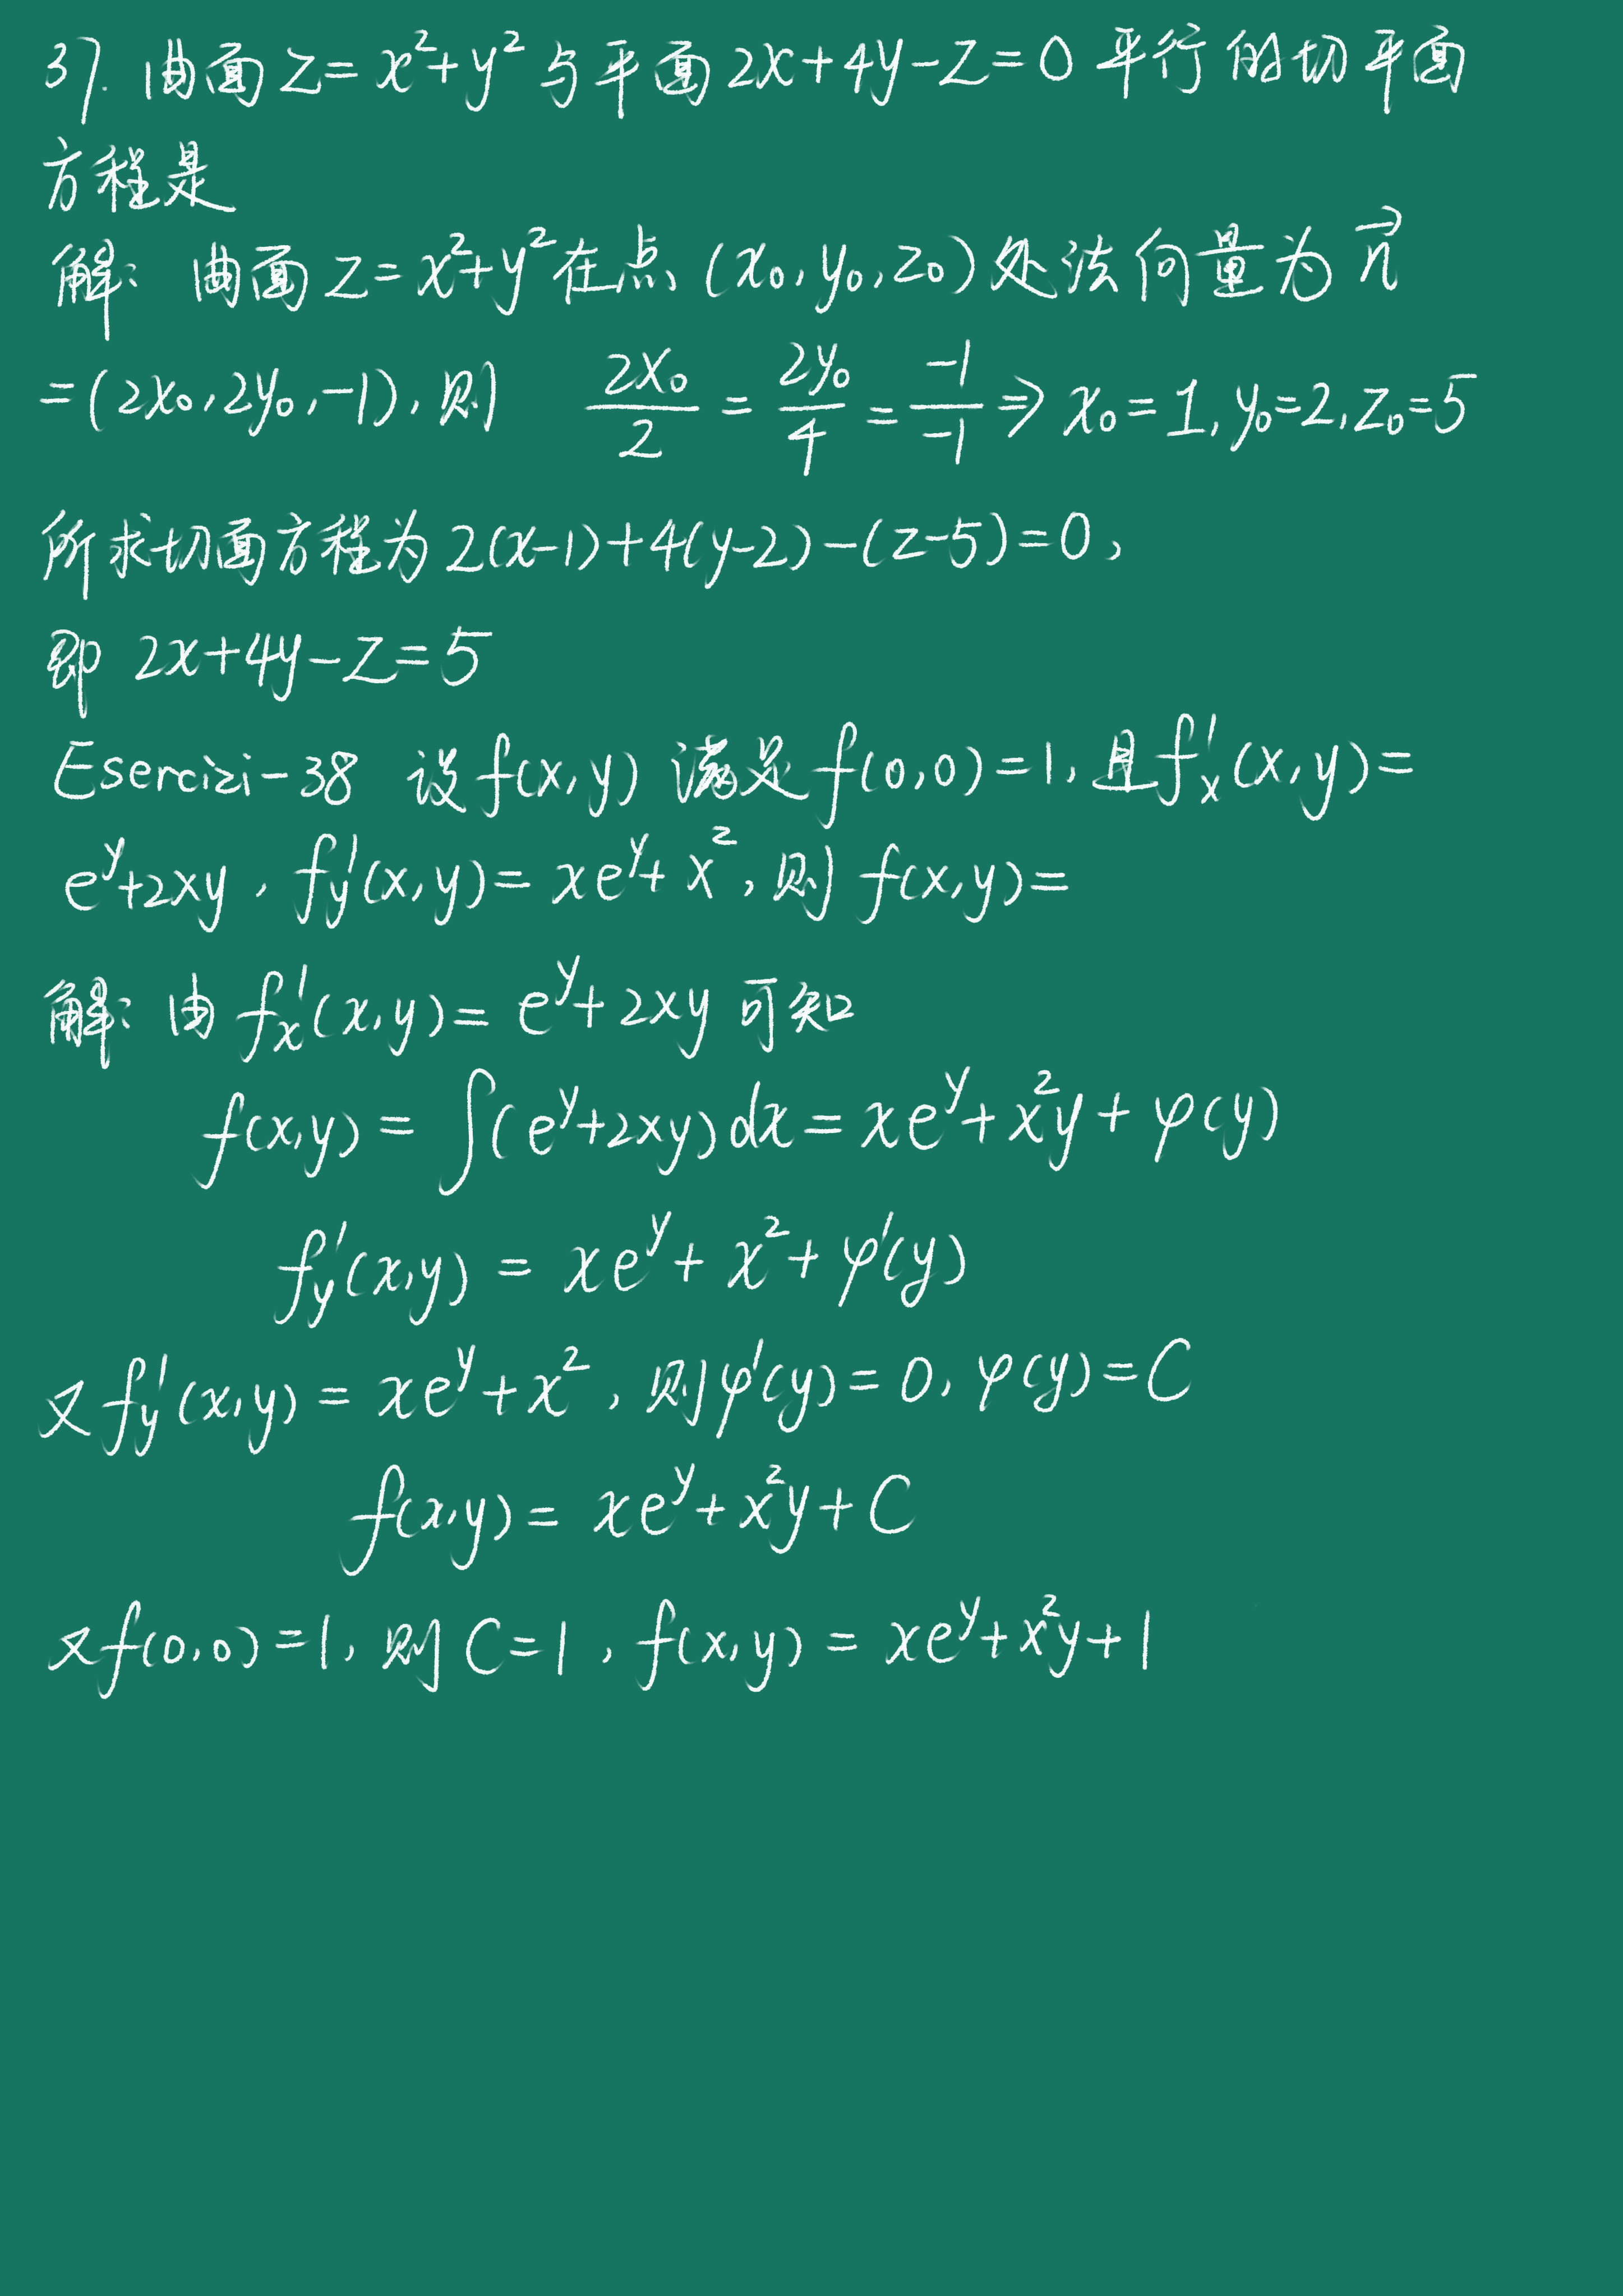 37. 曲面 z=x²+y² 与平面 2x+4y-z=0 平行的切平面
方程是
解: 曲面 z=x²+y² 在点 (x₀,y₀,z₀) 处法向量为 n⃗
=(2x₀,2y₀,-1), 则 2x₀/2 = 2y₀/4 = -1/-1 ⇒ x₀=1, y₀=2, z₀=5
所求切面方程为 2(x-1)+4(y-2)-(z-5)=0,
即 2x+4y-z=5
Esercizi-38 设 f(x,y) 满足 f(0,0)=1, 且 f'ₓ(x,y)=
e^y+2xy, f'_y(x,y)=xe^y+x², 则 f(x,y)=
解: 由 f'ₓ(x,y)=e^y+2xy 可知
f(x,y)=∫(e^y+2xy)dx=xe^y+x²y+φ(y)
f'_y(x,y)=xe^y+x²+φ'(y)
又 f'_y(x,y)=xe^y+x², 则 φ'(y)=0, φ(y)=C
f(x,y)=xe^y+x²y+C
又 f(0,0)=1, 则 C=1, f(x,y)=xe^y+x²y+1